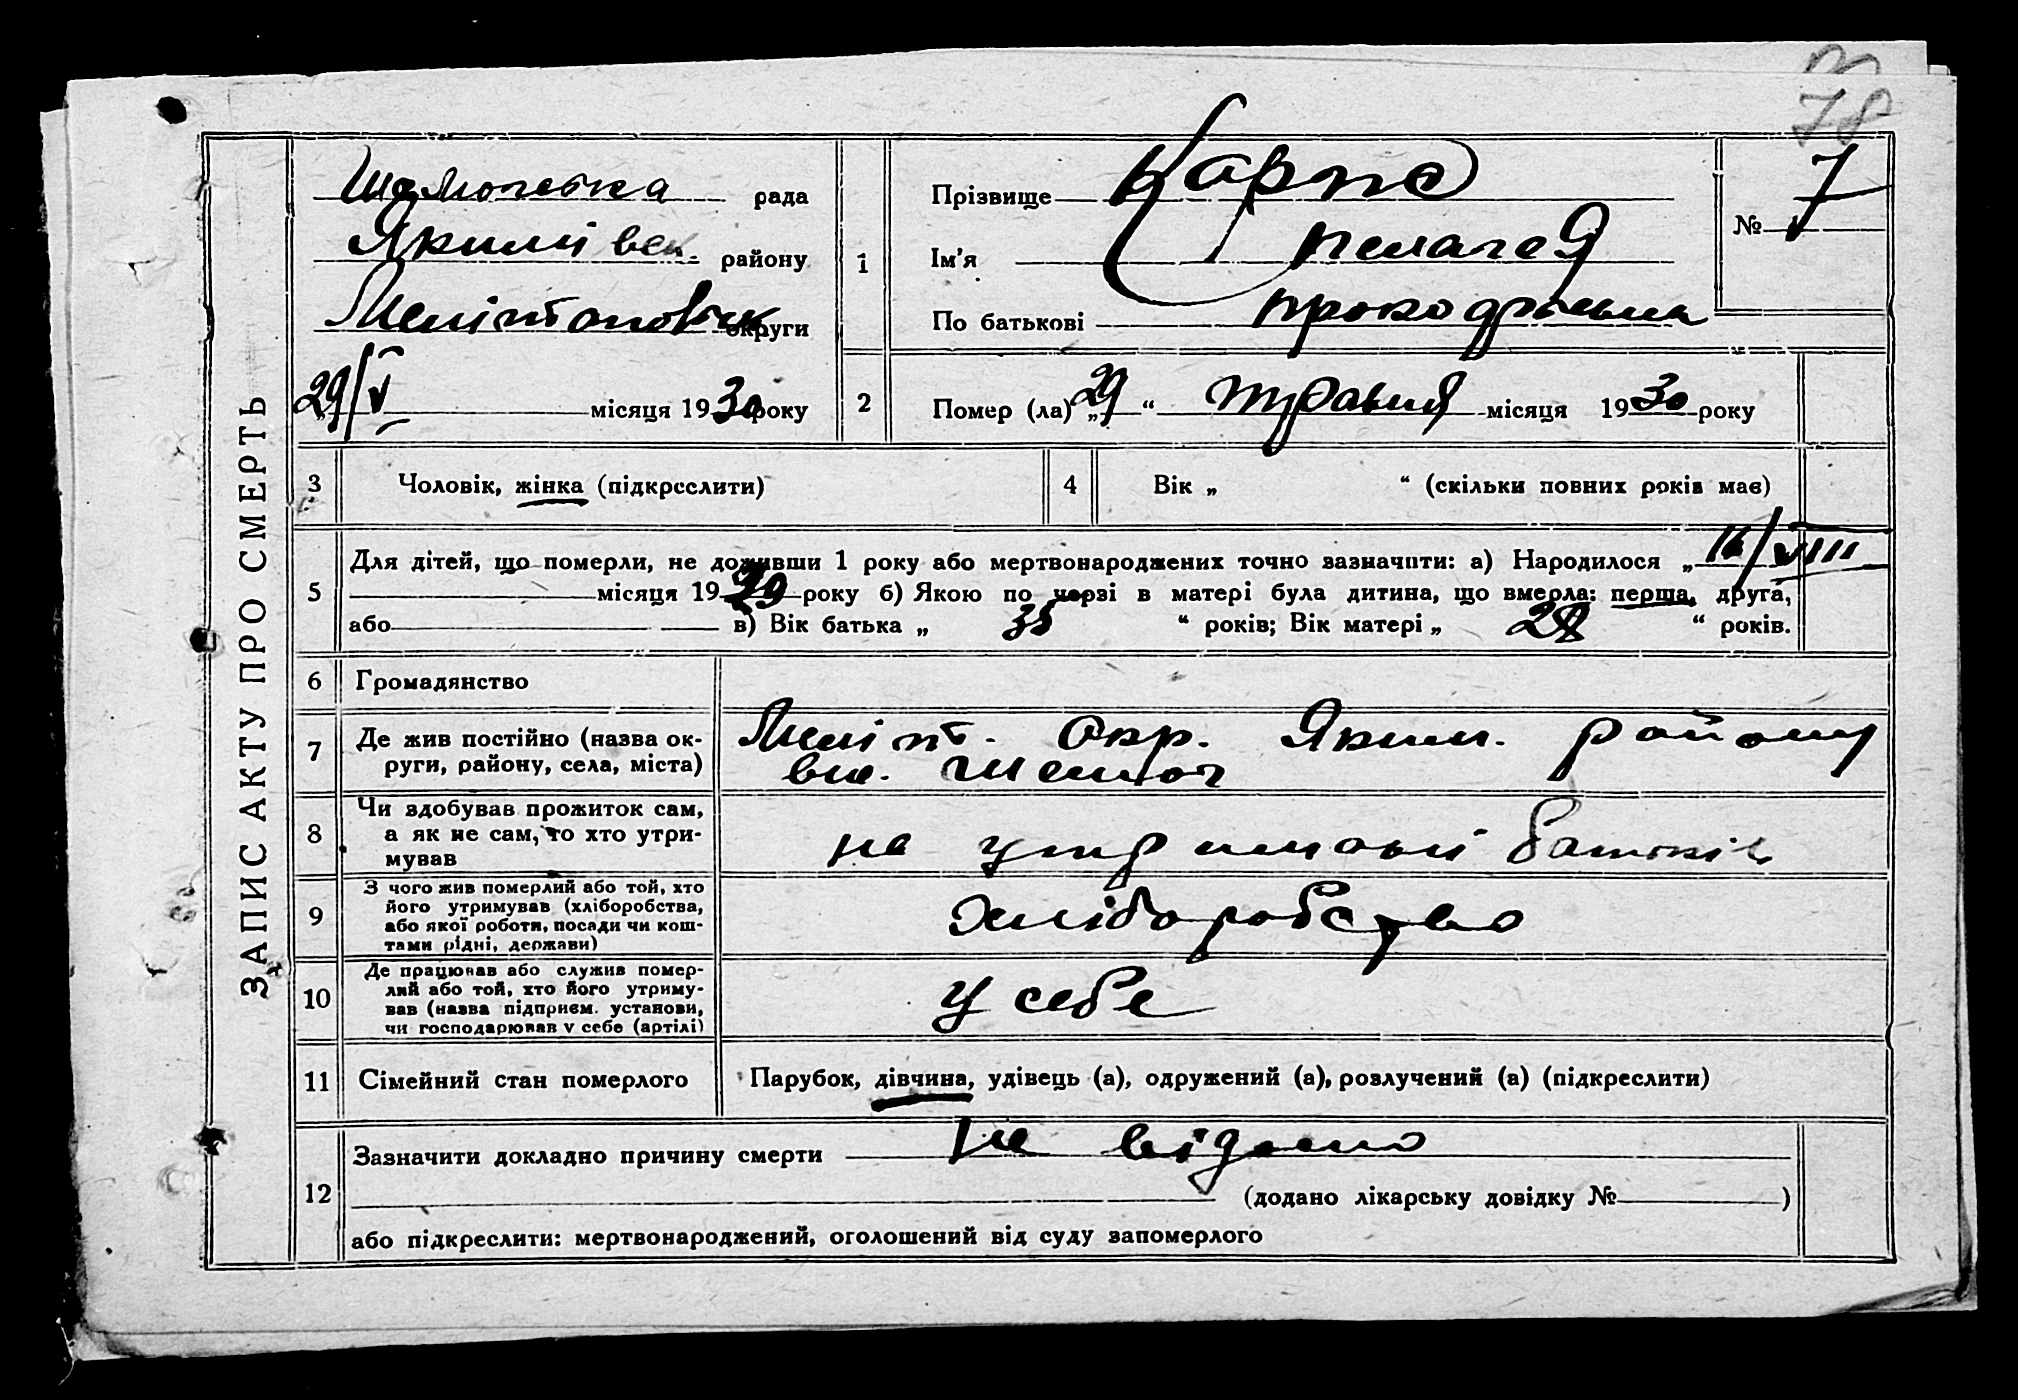 78
ЗАПИС АКТУ ПРО СМЕРТЬ
рада
Якимівськ. району
Мелітопольськ округи
29/V місяця 1930 року
1
Прізвище Карпе
Ім'я Пелагея
По батькові
№ 7
2
Помер (ла) „29“ травня місяця 1930 року
3
Чоловік, жінка (підкреслити)
4
Вік „ “ (скільки повних років має)
5
Для дітей, що померли, не доживши 1 року або мертвонароджених точно зазначити: а) Народилося „16/VIII
місяця 1929 року б) Якою по черзі в матері була дитина, що вмерла: перша, друга,
або в) Вік батька „ 35 “ років; Вік матері „ 28 “ років.
6
Громадянство
7
Де жив постійно (назва ок-
руги, району, села, міста)
Меліт. Окр. Яким. району
8
Чи здобував прожиток сам,
а як не сам, то хто утри-
мував
на утриманні батьків
9
З чого жив померлий або той, хто
його утримував (хліборобства,
або якої роботи, посади чи кош-
тами рідні, держави)
хліборобство
10
Де працював або служив помер-
лий або той, хто його утриму-
вав (назва підприєм. установи,
чи господарював у себе (артілі)
у себе
11
Сімейний стан померлого
Парубок, дівчина, удівець (а), одружений (а), розлучений (а) (підкреслити)
12
Зазначити докладно причину смерти не відомо
(додано лікарську довідку № )
або підкреслити: мертвонароджений, оголошений від суду запомерлого